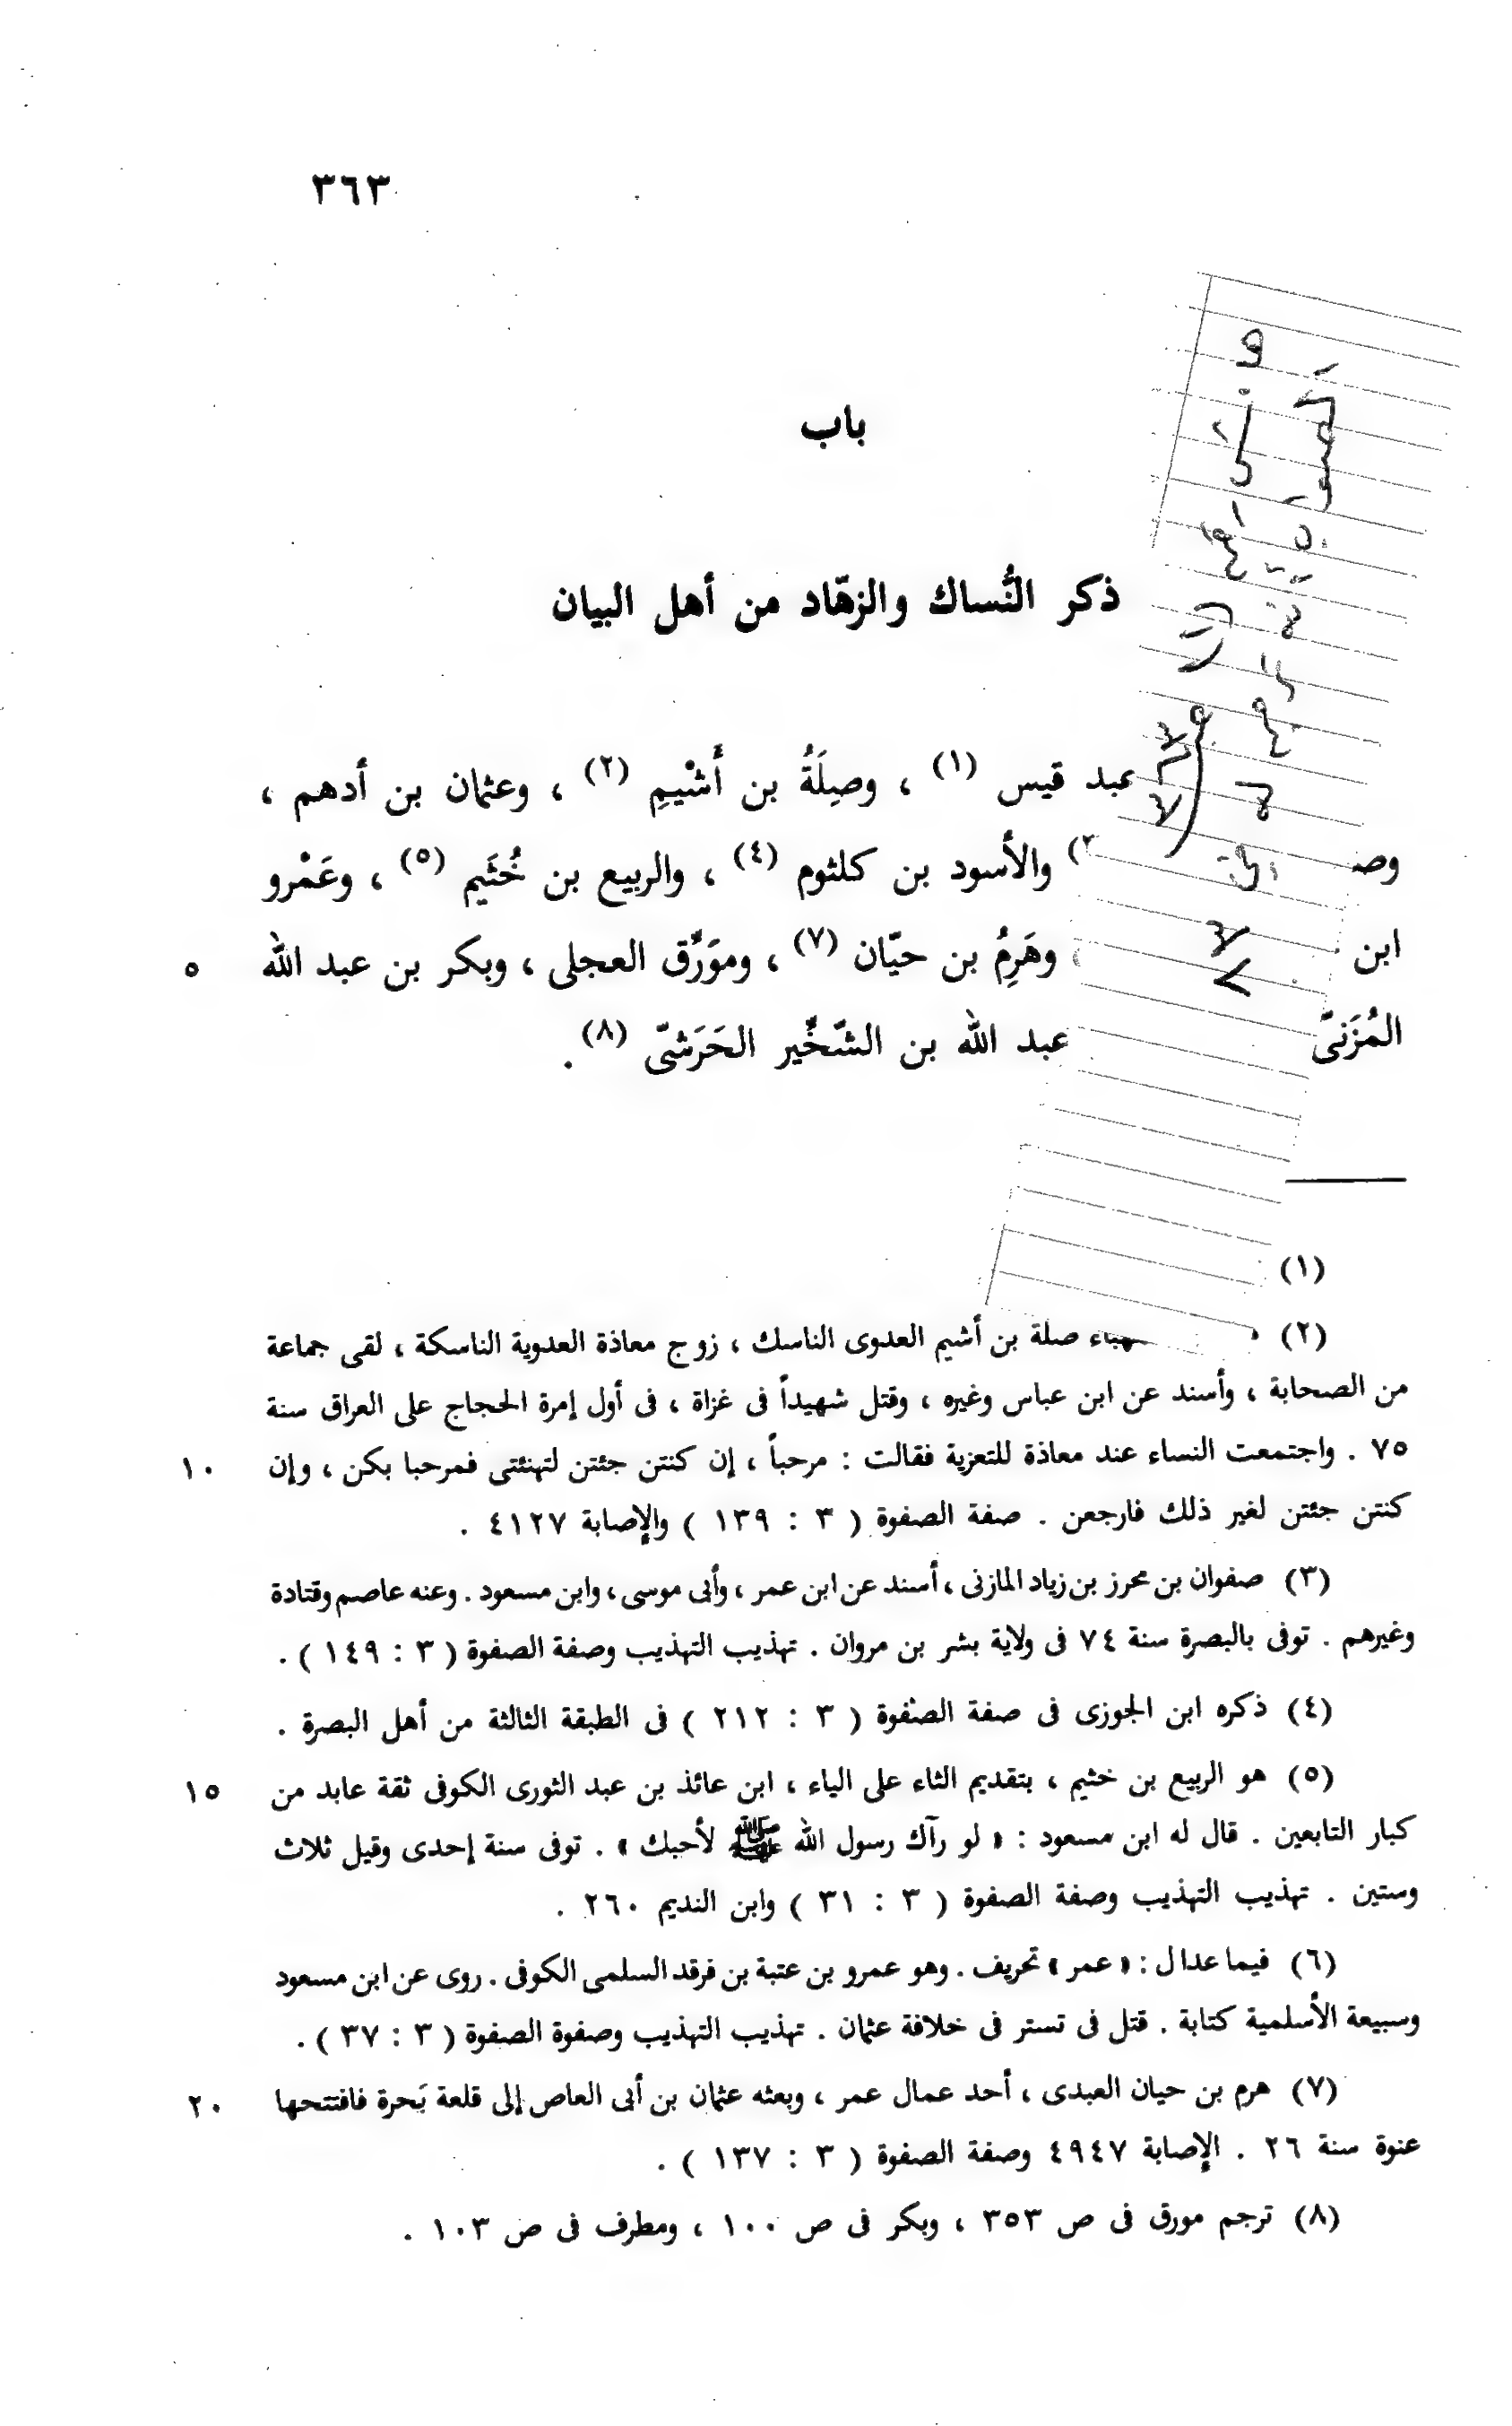 ٣٦٣
باب
ذكر النُّساك والزهّاد من أهل البيان
عبد قيس (١) ، وصِلَةُ بن أَشْيمِ (٢) ، وعثمان بن أدهم ،
وص والأسود بن كلثوم (٤) ، والربيع بن خُثَيم (٥) ، وعَمْرو
ابن وهَرِمُ بن حيّان (٧) ، ومورِّق العجلى ، وبكر بن عبد الله ٥
المُزَنىّ عبد الله بن الشّخِّير الحَرَشىّ (٨) .
(١)
(٢) صلة بن أشيم العدوى الناسك ، زوج معاذة العدوية الناسكة ، لقى جماعة
من الصحابة ، وأسند عن ابن عباس وغيره ، وقتل شهيداً فى غزاة ، فى أول إمرة الحجاج على العراق سنة
٧٥ . واجتمعت النساء عند معاذة للتعزية فقالت : مرحباً ، إن كنتن جئتن لتهنئتى فمرحبا بكن ، وإن ١٠
كنتن جئتن لغير ذلك فارجعن . صفة الصفوة ( ٣ : ١٣٩ ) والإصابة ٤١٢٧ .
(٣) صفوان بن محرز بن زياد المازنى ، أسند عن ابن عمر ، وأبى موسى ، وابن مسعود . وعنه عاصم وقتادة
وغيرهم . توفى بالبصرة سنة ٧٤ فى ولاية بشر بن مروان . تهذيب التهذيب وصفة الصفوة ( ٣ : ١٤٩ ) .
(٤) ذكره ابن الجوزى فى صفة الصفوة ( ٣ : ٢١٢ ) فى الطبقة الثالثة من أهل البصرة .
(٥) هو الربيع بن خثيم ، بتقديم الثاء على الياء ، ابن عائذ بن عبد الثورى الكوفى ثقة عابد من ١٥
كبار التابعين . قال له ابن مسعود : « لو رآك رسول الله ﷺ لأحبك » . توفى سنة إحدى وقيل ثلاث
وستين . تهذيب التهذيب وصفة الصفوة ( ٣ : ٣١ ) وابن النديم ٢٦٠ .
(٦) فيما عدا ل : « عمر » تحريف . وهو عمرو بن عتبة بن فرقد السلمى الكوفى . روى عن ابن مسعود
وسبيعة الأسلمية كتابة . قتل فى تستر فى خلافة عثمان . تهذيب التهذيب وصفوة الصفوة ( ٣ : ٣٧ ) .
(٧) هرم بن حيان العبدى ، أحد عمال عمر ، وبعثه عثمان بن أبى العاص إلى قلعة بَحرة فافتتحها ٢٠
عنوة سنة ٢٦ . الإصابة ٤٩٤٧ وصفة الصفوة ( ٣ : ١٣٧ ) .
(٨) ترجم مورق فى ص ٣٥٣ ، وبكر فى ص ١٠٠ ، ومطرف فى ص ١٠٣ .